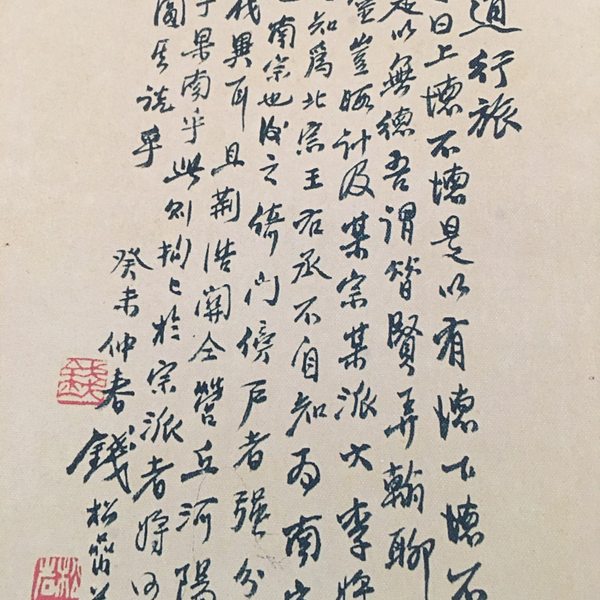 道行旅
曰上德不德是以有德下德不
是以無德吾謂昔賢弄翰聊
豈暇計及某宗某派大李將
知為北宗王右丞不自知為南宗
南宗也後之倚門傍戶者強分
我異耳且荊浩關仝營丘河陽
于果南乎此則拘拘於宗派者將何
其說乎
癸未仲春錢松喦
錢